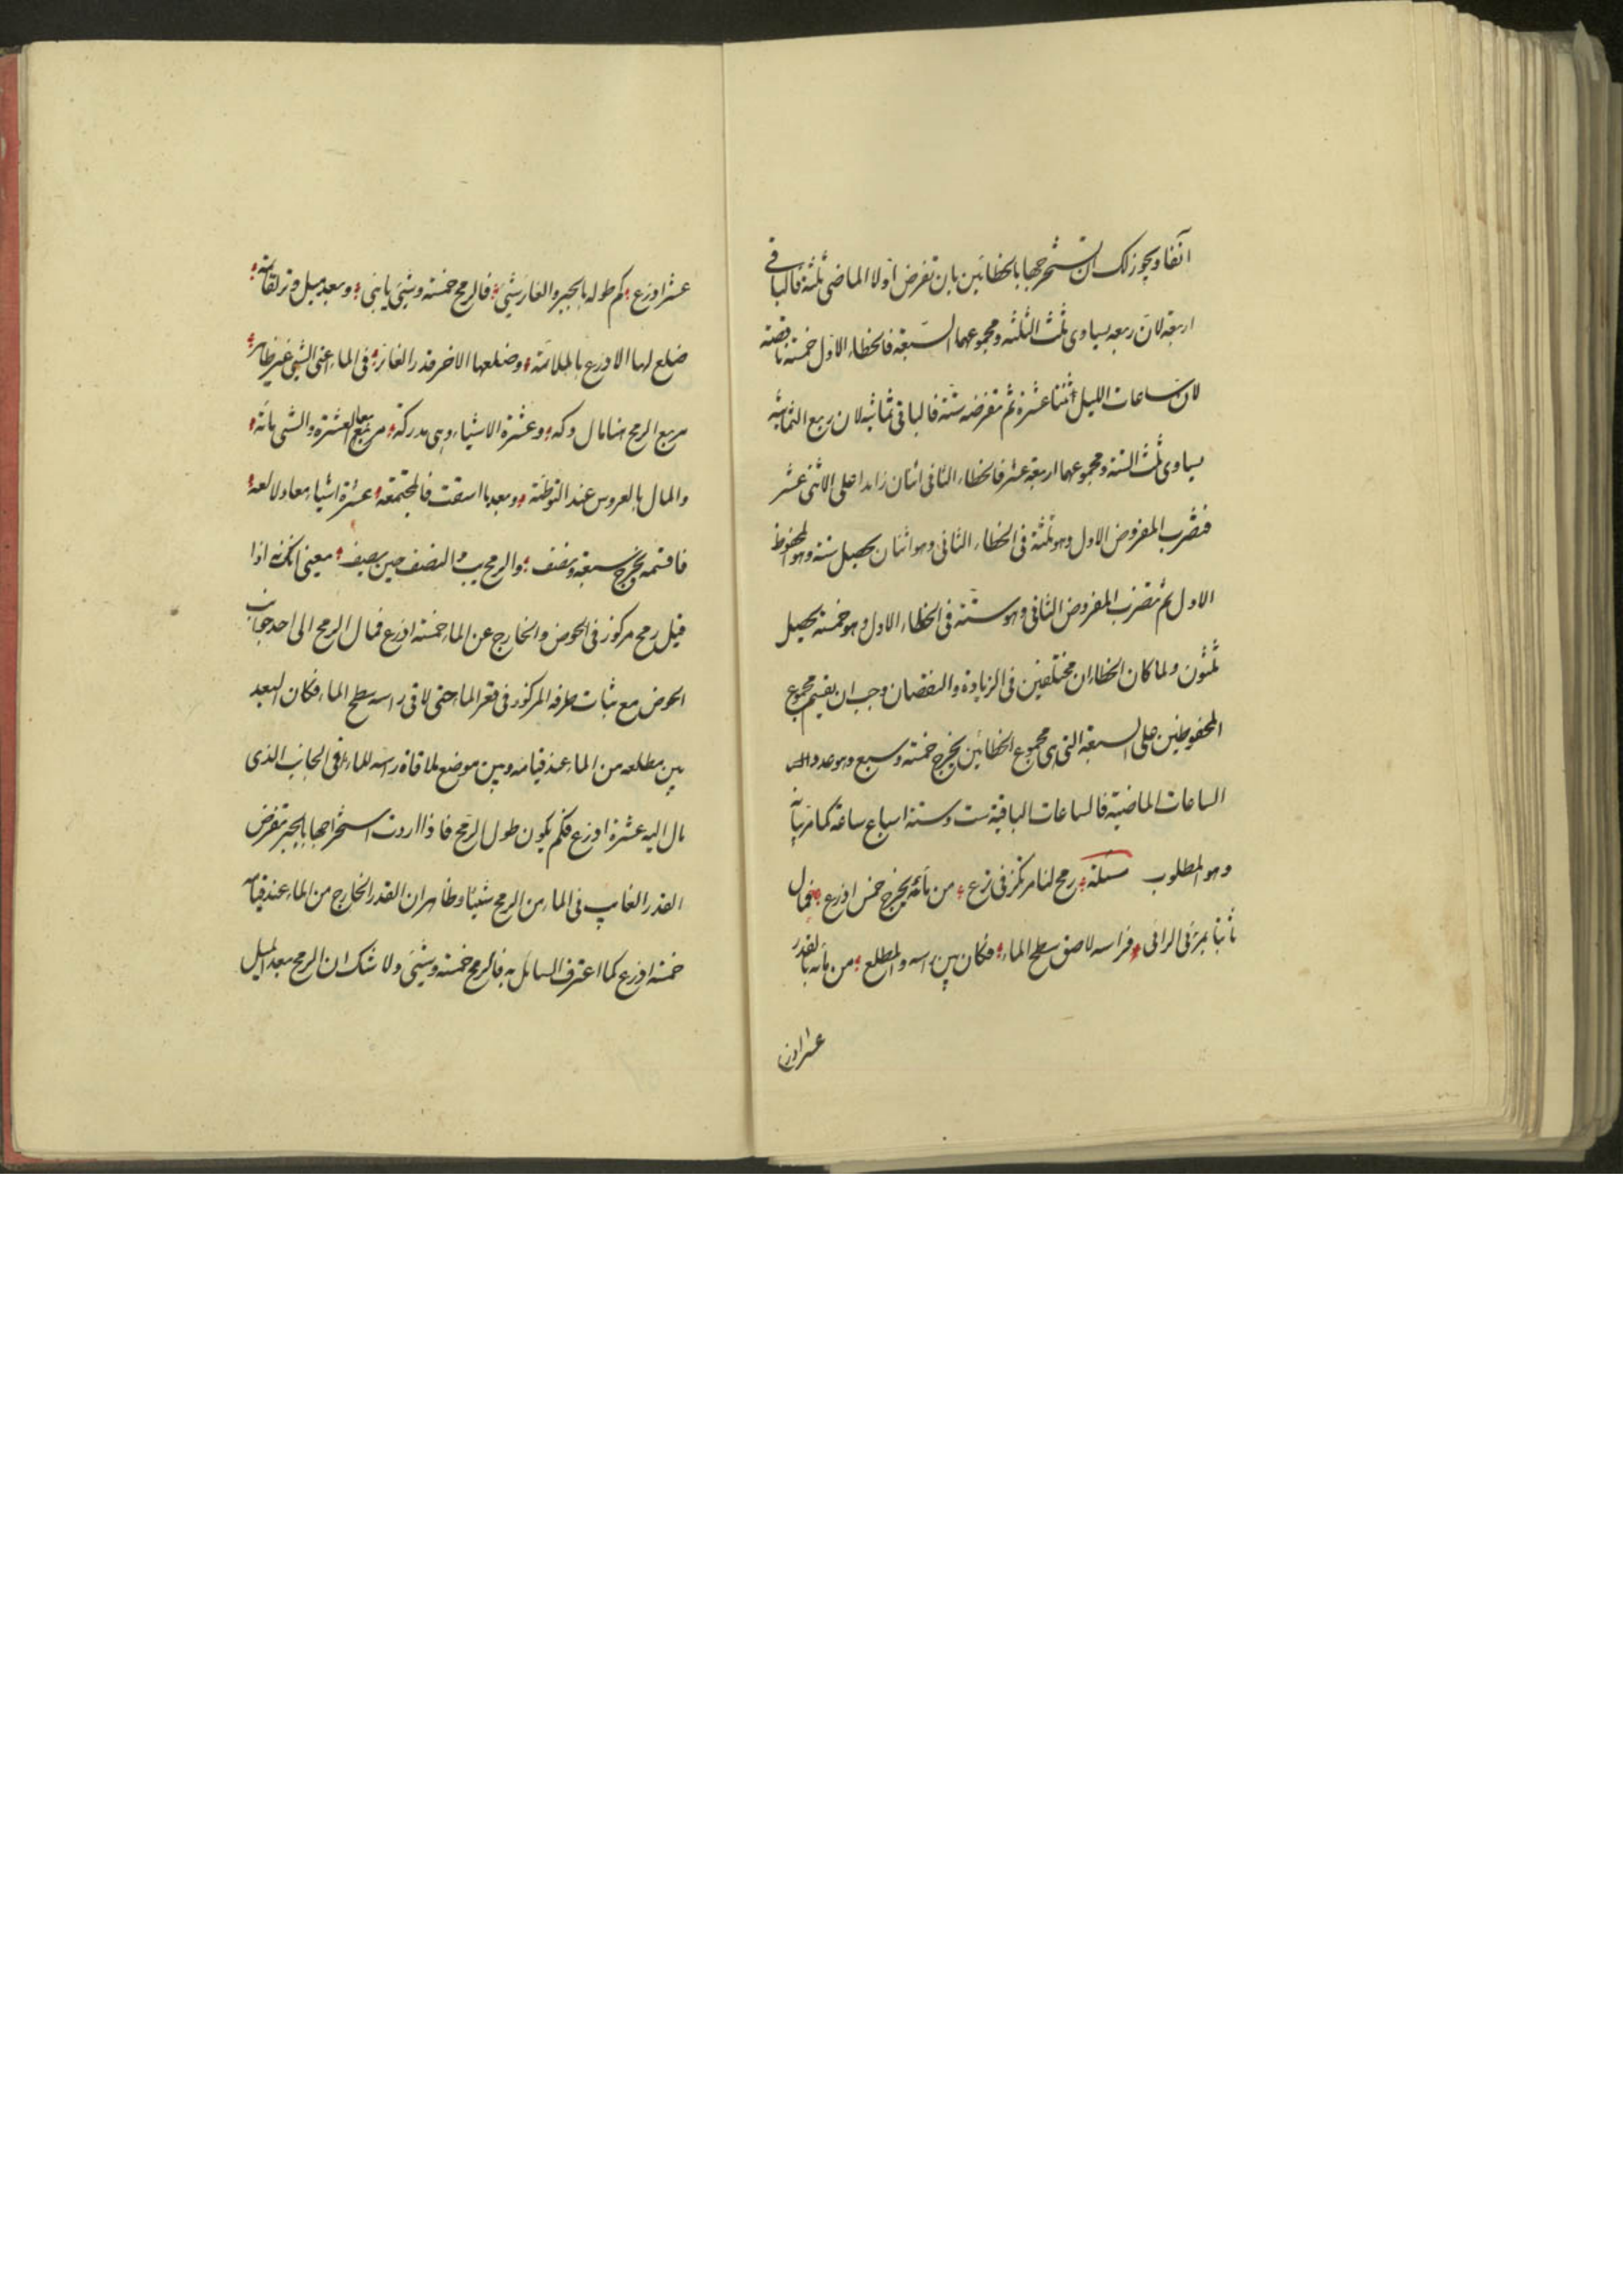 آنفا ويجوز لك ان تستخرجها بالخطائين بان تفرض اولا الماضى ثلثة فالباقى
اربعة لان ربعه يساوى ثلث الثلثه ومجموعهما السبعة فالخطاء الاول خمسة ناقصة
لان ساعات الليل اثنتا عشرة ثم تفرضه ستة فالباقى ثمانية لان ربع الثمانية
يساوى ثلث الستة ومجموعهما اربعة عشر فالخطاء الثانى اثنان زايدا على الاثنى عشر
فتضرب المفروض الاول وهو ثلثة فى الخطاء الثانى وهو اثنان يحصل ستة وهو المحفوظ
الاول ثم تضرب المفروض الثانى وهو ستة فى الخطاء الاول وهو خمسة يحصل
ثلثون ولما كان الخطاان مختلفين فى الزيادة والنقصان وجب ان يقسم مجموع
المحفوظين على السبعة التى هى مجموع الخطائين يخرج خمسة وسبع وهو عدد
الساعات الماضية فالساعات الباقية ست وستة اسباع ساعة كما مر بيانه
وهو المطلوب مسئلة رمح لنا مركز فى ترع من مائه يخرج خمس اذرع فمال
ثابتا بمرئى الرائى فراسه لاصق سطح الماء فكان بين راسه والمطلع من مائه بالقدر
عشر اذرع
عشر اذرع كم طوله بالجبر والغار شئ فالرمح خمسة وشئ يا بنى وبعد ميل وتر لقائمه
ضلع لها الاذرع بالملائمة وضلعها الاخر قدر الغائر فى الماء اعنى الشئ غير ظاهر
مربع الرمح هنا مال وكه وعشرة الاشياء وهى مدركة مربع العشرة والشئ مائة
والمال بالعروس عند التوطئة وبعد ما اسقت فالمجتمعة عشرة اشياء معادلا لعة
فاقسمه يخرج سبعة ونصف والرمح يب والنصف حين يصف معنى انه اذا
قيل رمح مركوز فى الحوض والخارج عن الماء خمسة اذرع فمال الرمح الى احد جانب
الحوض مع ثبات طرفه المركوز فى قعر الماء حتى لاقى راسه سطح الماء فكان البعد
بين مطلعه من الماء عند قيامه وبين موضع ملاقاة راسه للماء فى الجانب الذى
مال اليه عشرة اذرع فكم يكون طول الرمح فاذا اردت استخراجها بالجبر تفرض
القدر الغايب فى الماء من الرمح شيئا وظاهر ان القدر الخارج من الماء عند قيامه
خمسة اذرع كما اعترف السايل به فالرمح خمسة وشئ ولا شك ان الرمح بعد الميل